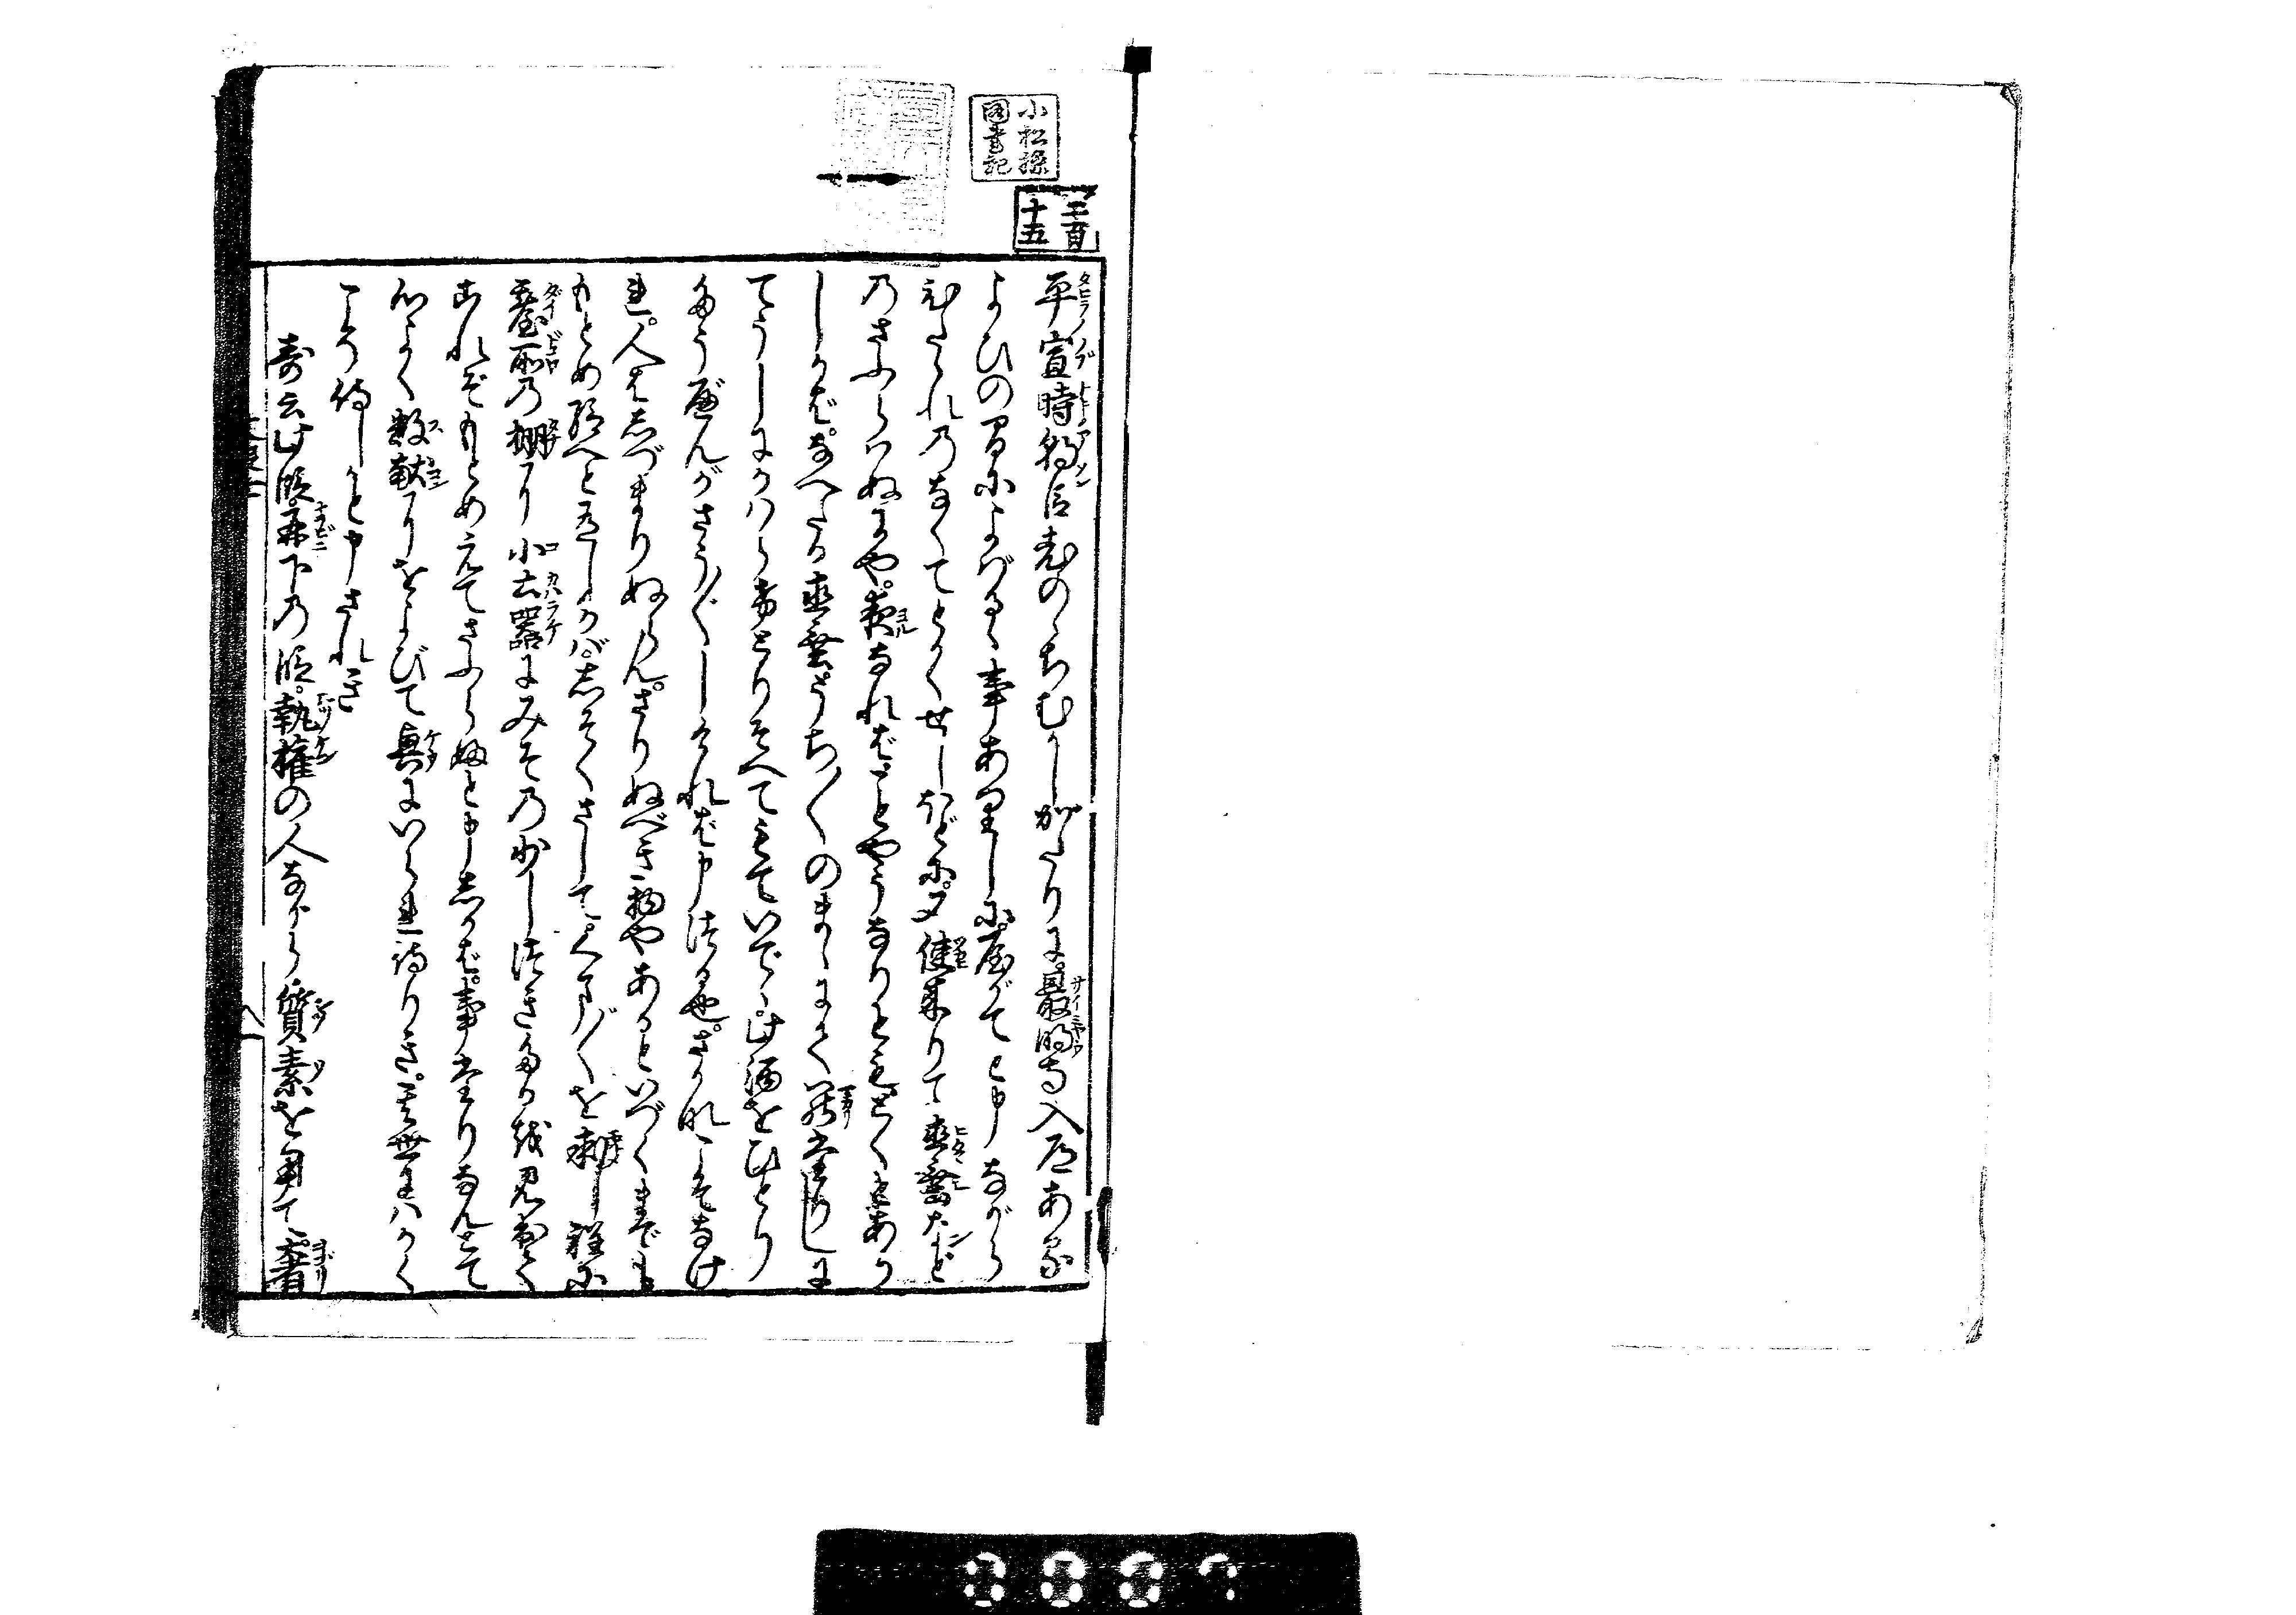 小松操
図書記
二百
十五
平宣時朝臣老のゝちむかしがたりに。最明寺入道ある
よひの間によばるゝ事ありしに。やがてと申ながら
ひたゝれのなくてとかくせしほどに。又使来りて直垂など
のさふらはぬにや。夜なればことやうなりともとくとあり
しかば。なへたる直垂うち〳〵のまゝにてまかりたりしに
てうしにかはらけとりそへてもていでゝ。此酒をひとり
たうべんがさう〴〵しければ申つる也。さかなこそなけ
れ。人はしづまりぬらん。さりぬべき物やあるといづくまでも
もとめ給へと有しかば。しそくさして。くま〴〵を求し程に
台所の棚に小土器にみその少しつきたるを見出て
これぞもとめえてさふらふと申しかば。事たりなんとて
心よく数献にをよびて興にいられ侍りき。其世にはかく
こそ侍しかと申されき
寿云此段再下の段。執権の人ながら質素を用て。奢